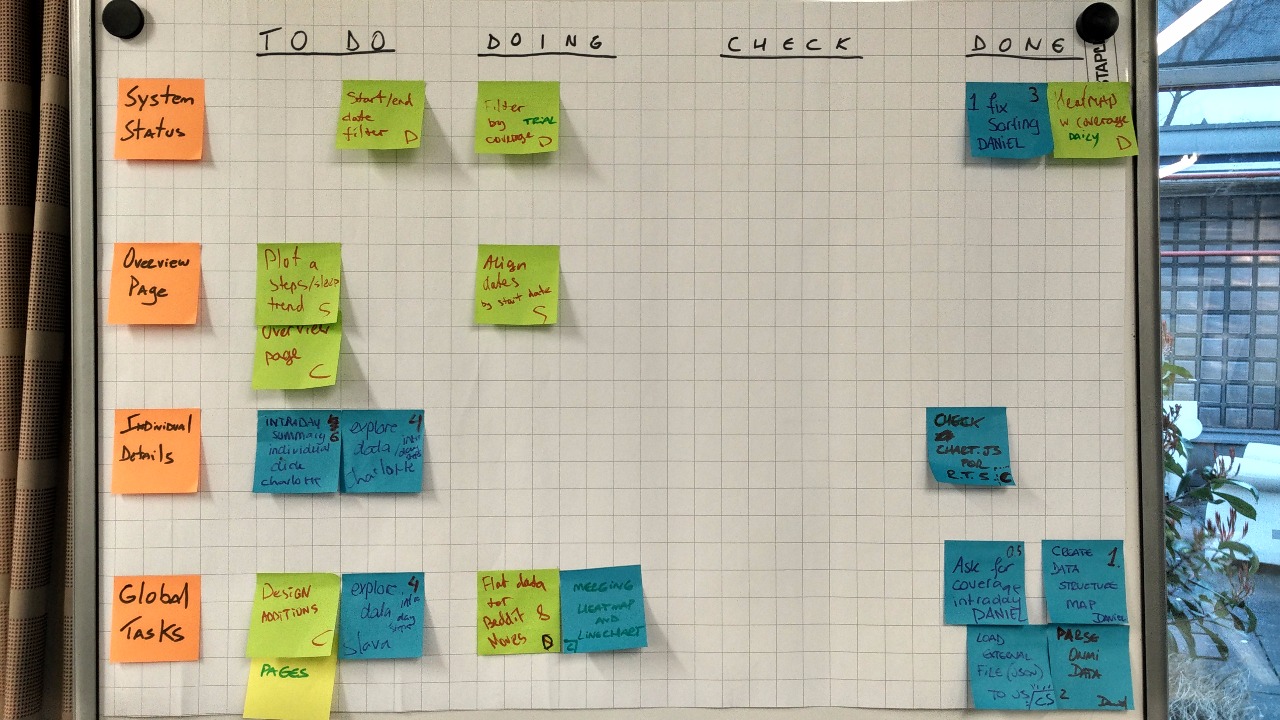 TO DO
DOING
CHECK
DONE
STAPL
System
Status
Start/end
date
filter D
Filter
by TRIAL
coverage D
1 fix 3
Sorting
DANIEL
Heatmap
w coverage
DAILY
D
Overview
Page
Plot a
steps/sleep
trend S
overview
page
C
Align
dates
by start date
S
Individual
Details
INTRADAY
summary 6
individual
click
charlotte
explore 4
data intra
day
charlotte
CHECK
CHART.JS
FOR
R.T.S.
Global
Tasks
DESIGN
ADDITIONS
C
PAGES
explore 4
data intra
day
steps
Slava
Flat data
for
Reddit &
Movies D
MERGING
HEATMAP
AND
LINECHART
0.5
Ask for
coverage
intraday
DANIEL
CREATE 1.
DATA
STRUCTURE
MAP
Daniel
LOAD
EXTERNAL
FILE (JSON)
TO JS/CS 2
PARSE
ONMI
DATA